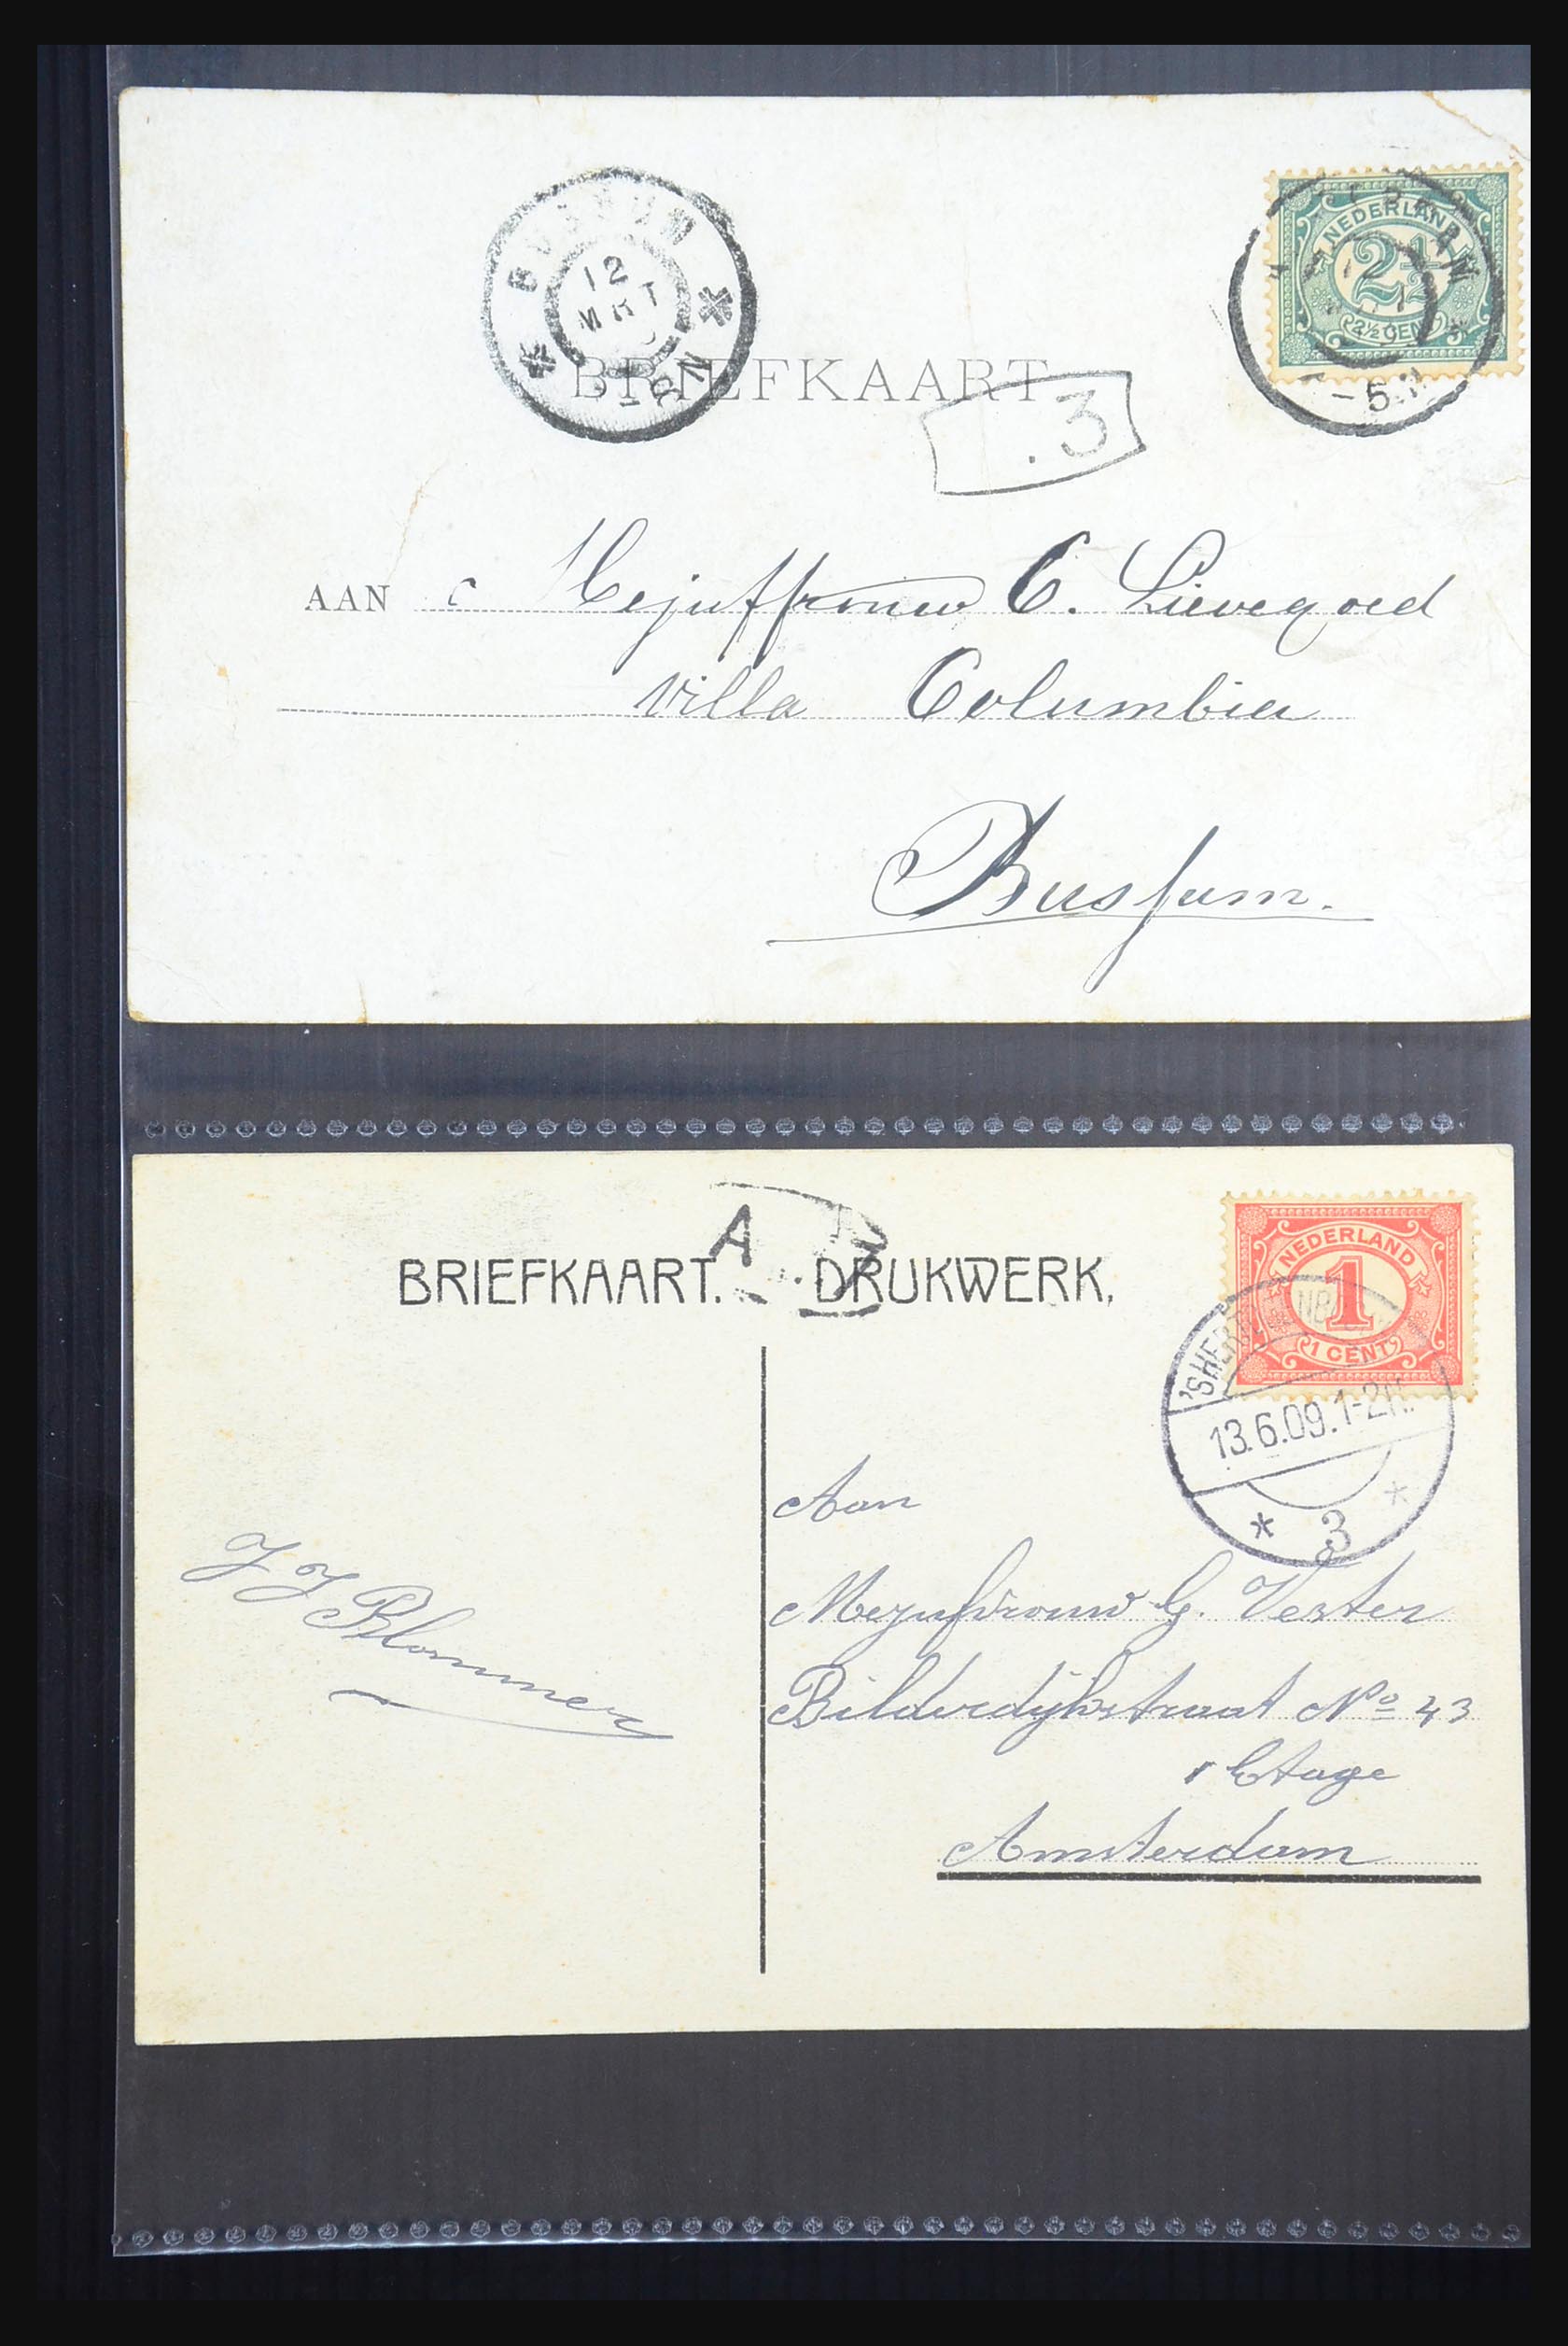 BUSSUM
12
MRT
8-
N
NEDERLAND
2½
2½ CENT
-5
BRIEFKAART
.3
AAN Mejuffrouw C. Lievegoed
Villa Columbia
Bussum.
A
BRIEFKAART. DRUKWERK,
NEDERLAND
1
1 CENT
13.6.09.1-2N.
* 3 *
J J Blommer
Aan
Mejufvrouw G. Vester
Bilderdijkstraat No 43
1 Etage
Amsterdam